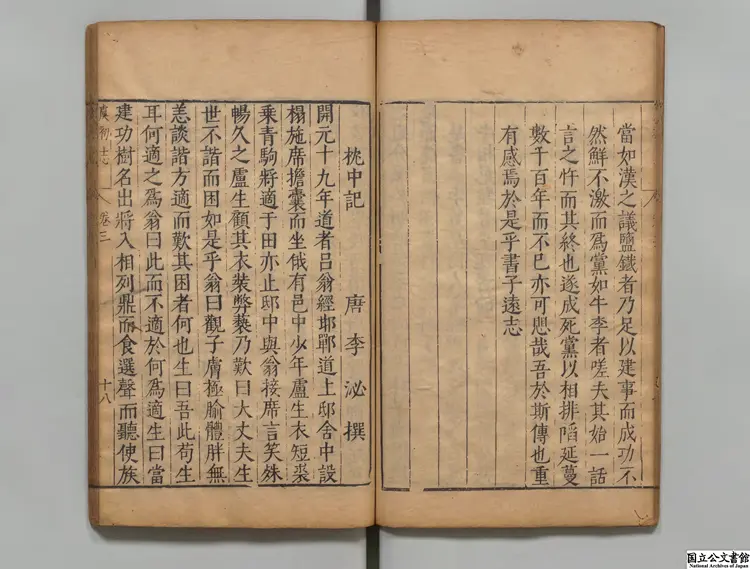 當如漢之議鹽鐵者乃足以建事而成功不
然鮮不激而爲黨如牛李者嗟夫其始一話
言之忤而其終也遂成死黨以相排陷延蔓
數千百年而不已亦可思哉吾於斯傳也重
有感焉於是乎書子遠志
枕中記 唐李泌撰
開元十九年道者呂翁經邯鄲道上邸舍中設
榻施席擔囊而坐俄有邑中少年盧生衣短裘
乘青駒將適于田亦止邸中與翁接席言笑殊
暢久之盧生顧其衣裝弊褻乃歎曰大丈夫生
世不諧而困如是乎翁曰觀子膚極腧體胖無
恙談諧方適而歎其困者何也生曰吾此苟生
耳何適之爲翁曰此而不適於何爲適生曰當
建功樹名出將入相列鼎而食選聲而聽使族
虞初志 卷三 十八
国立公文書館
National Archives of Japan